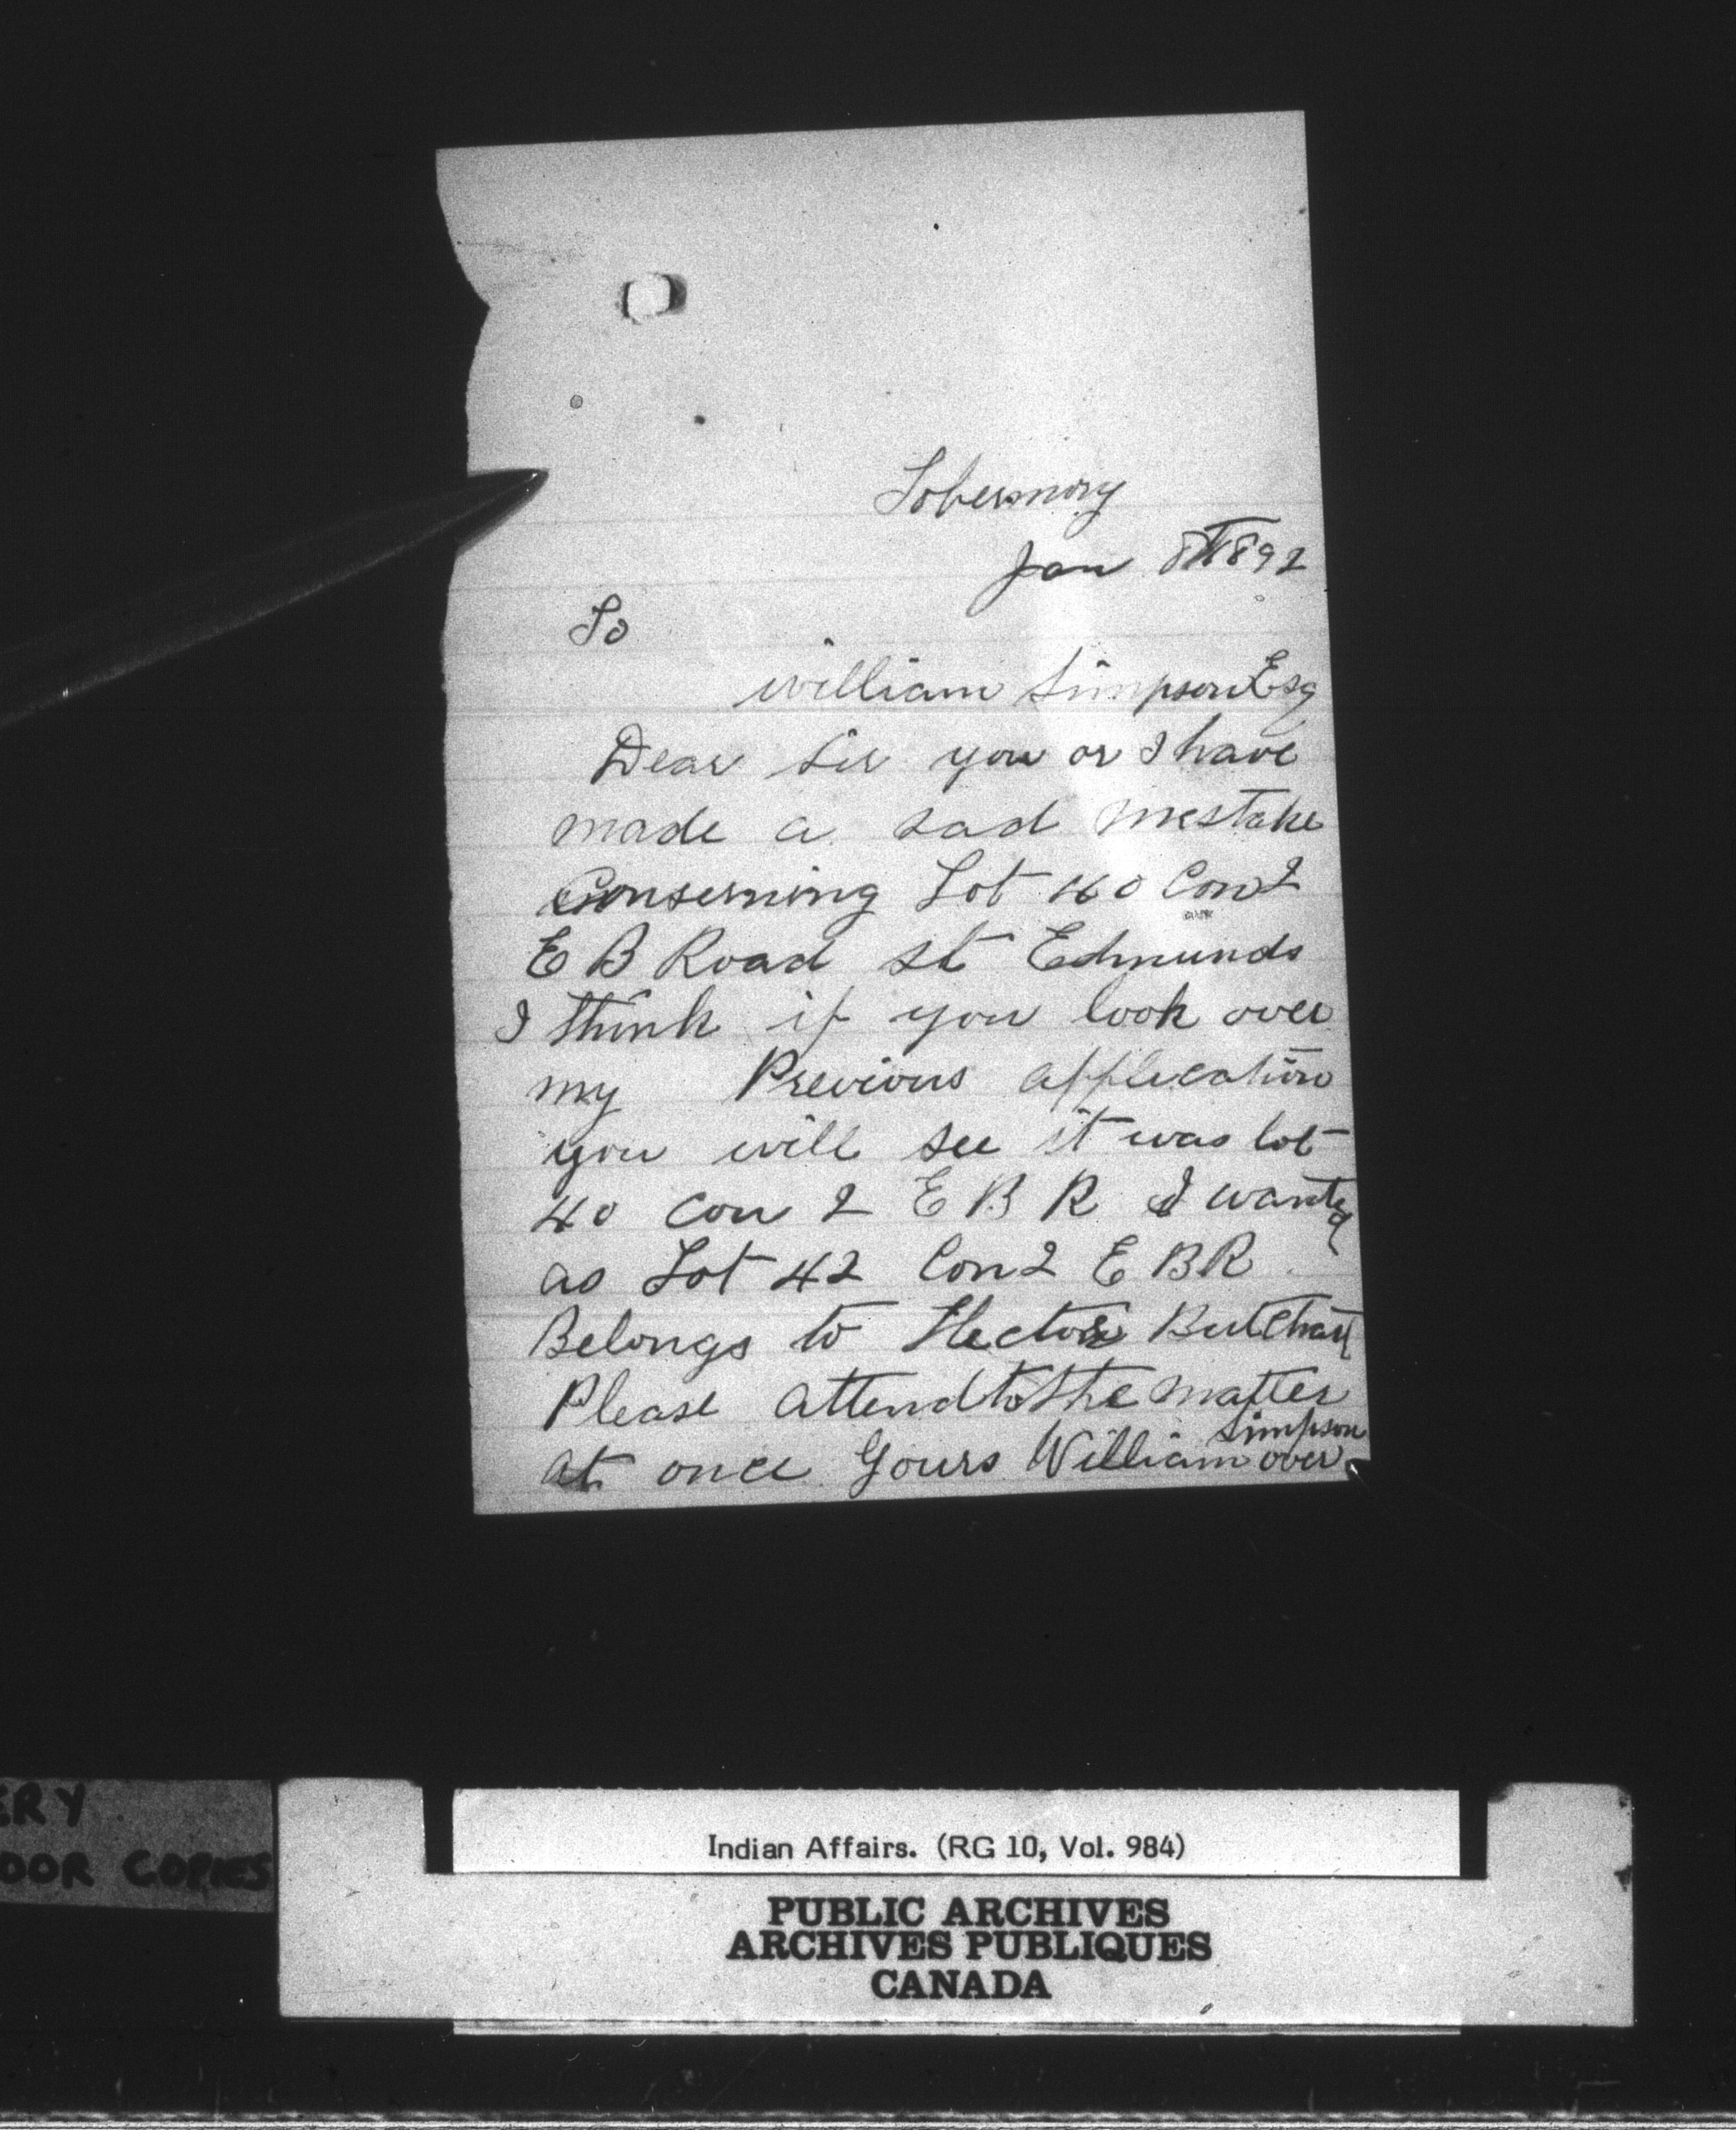 Tobermory
Jan 8th 1892
To
william Simpson Esq
Dear Sir you or I have
made a sad mestake
Conserning Lot 40 Con 2
E B Road st Edmunds
I think if you look over
my Previous application
you will see it was lot
40 con 2 E B R I wanted
as Lot 42 Con 2 E B R
Belongs to Hector Butchart
Please attend to the matter
at once Yours William Simpson
over
ERY
OOR COPIES
Indian Affairs. (RG 10, Vol. 984)
PUBLIC ARCHIVES
ARCHIVES PUBLIQUES
CANADA